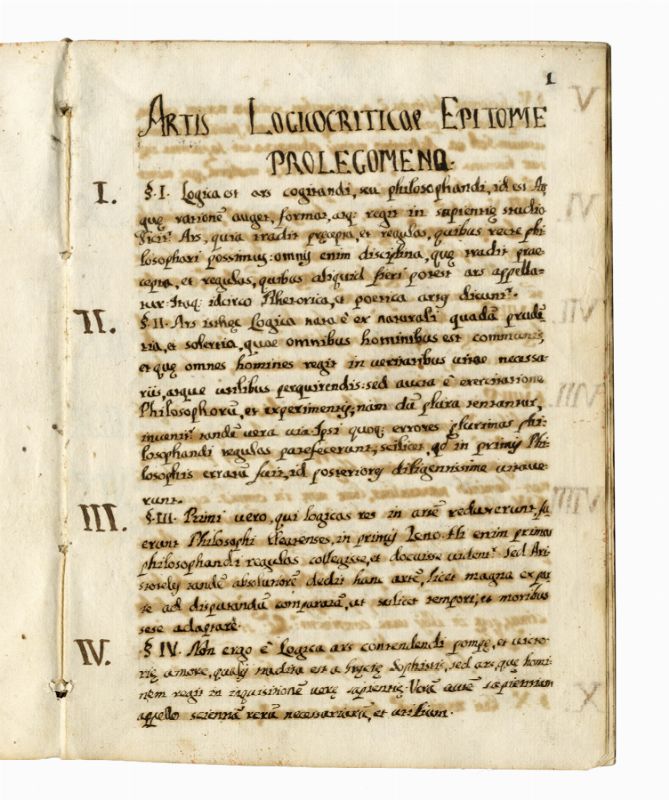 1
ARTIS LOGICOCRITICAE EPITOME
PROLEGOMENA.
I. §. I. Logica est ars cogitandi, seu philosophandi, id est Ars
quę rationē auget, format, atq: regit in sapientię studio
Dicit.r Ars, quia tradit pręcepta, et regulas, quibus recte phi
losophari possimus: omnis enim disciplina, quę tradit prae
cepta, et regulas, quibus aliquid fieri potest ars appella-
tur. Itaq: idcirco Rhetorica, et poetica artes dicunt.r
II. §. II. Ars isthęc Logica nata ē ex naturali quadā prudē
tia, et solertia, quae omnibus hominibus est communis,
et quę omnes homines regit in veritatibus vitae necessa
riis, atque utilibus perquirendis: sed aucta ē exercitatione
Philosophorū, et experimentis, nam dū plura tentantur,
invenit.r tandē vera via. Ipsi quoq: errores plurimas phi-
losophandi regulas patefecerunt, scilicet, qd in primis Phi
losophis erratū fuit, id posteriores diligentissime vitave-
runt.
III. §. III. Primi vero, qui logicas res in artē reduxerunt, fu
erunt Philosophi Eleatenses, in primis Zeno. Hi enim primas
philosophandi regulas collegisse, et docuisse videnť. Sed Ari
stoteles tandē absolutiorē dedit hanc artē, licet magna ex par
te ad disputandū comparatā, ut scilicet tempori, et moribus
sese adaptaret.
IV. § IV. Non ergo ē Logica ars contendendi pompę, et victo-
rię amore, qualis tradita est a Gręcis Sophistis, sed ars, quę homi
nem regit in inquisitionē verę sapientię. Verā autē sapientiam
appello scientiā rerū necessariarū, et utilium.